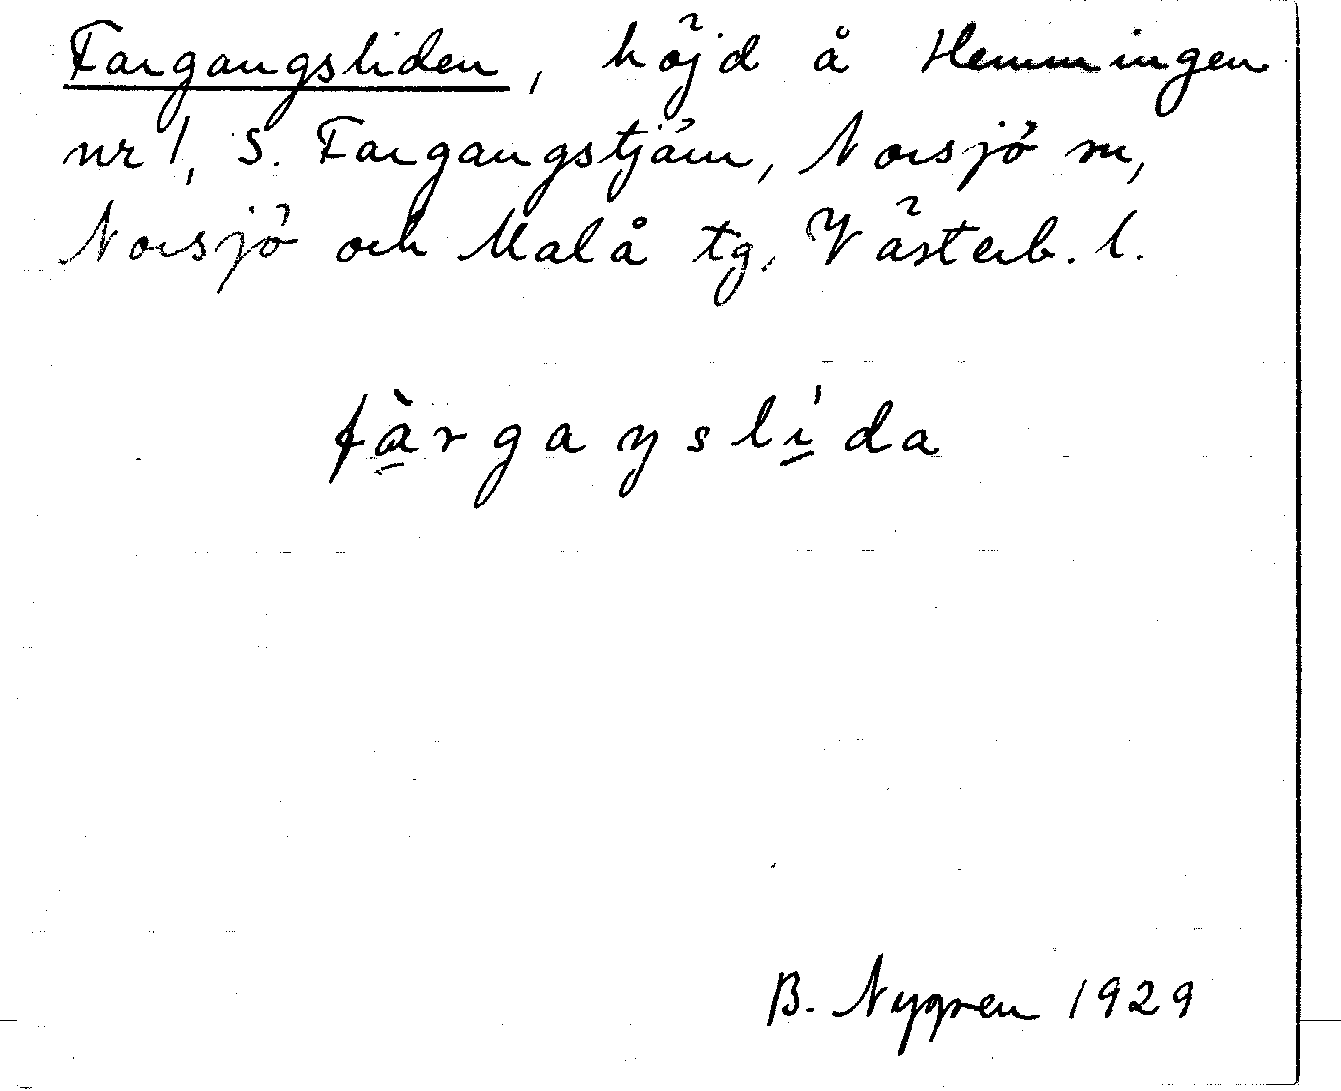 Fargangsliden, höjd å Hemmingen
nr 1, S. Fargangstjärn, Norsjö sn,
Norsjö och Malå tg, Västerb. l.
fà̱rgaŋslí̱da
B. Nygren 1929